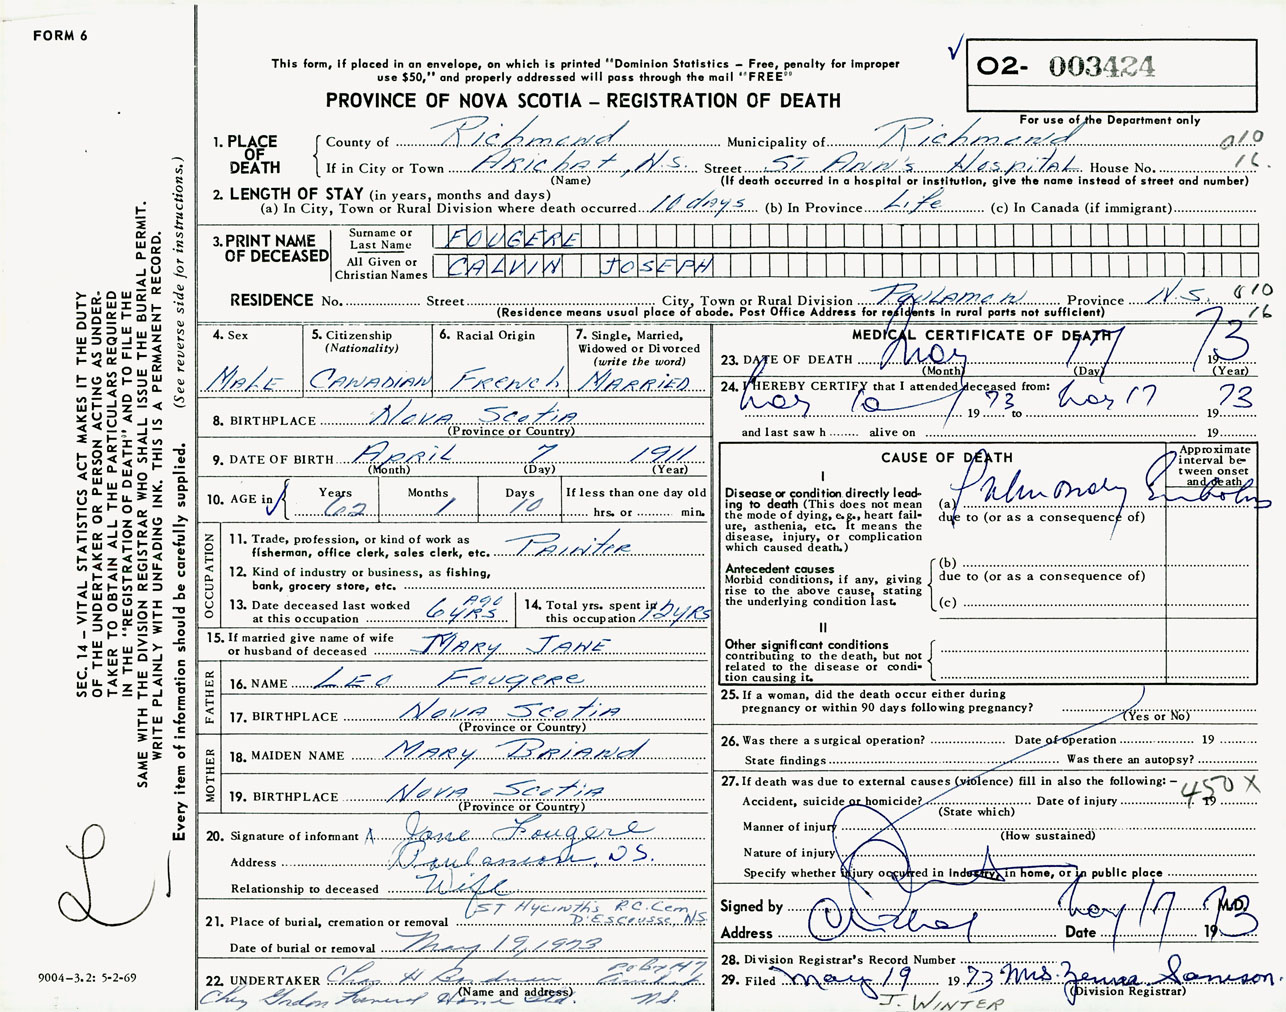 FORM 6
This form, if placed in an envelope, on which is printed "Dominion Statistics – Free, penalty for improper
use $50," and properly addressed will pass through the mail "FREE"
PROVINCE OF NOVA SCOTIA – REGISTRATION OF DEATH
02- 003424
For use of the Department only
1. PLACE OF DEATH
County of Richmond Municipality of Richmond 010
If in City or Town Arichat, N.S. Street St Ann's Hospital House No. 16.
(Name) (If death occurred in a hospital or institution, give the name instead of street and number)
2. LENGTH OF STAY (in years, months and days)
(a) In City, Town or Rural Division where death occurred 10 days (b) In Province Life (c) In Canada (if immigrant)
3. PRINT NAME OF DECEASED
Surname or Last Name FOUGERE
All Given or Christian Names CALVIN JOSEPH
RESIDENCE No. Street City, Town or Rural Division Poulamon Province N.S. 010
(Residence means usual place of abode. Post Office Address for residents in rural parts not sufficient) 16
4. Sex
MALE
5. Citizenship
(Nationality)
CANADIAN
6. Racial Origin
French
7. Single, Married,
Widowed or Divorced
(write the word)
MARRIED
8. BIRTHPLACE Nova Scotia
(Province or Country)
9. DATE OF BIRTH April 7 1911
(Month) (Day) (Year)
10. AGE in
Years Months Days If less than one day old
62 1 10 hrs. or min.
OCCUPATION
11. Trade, profession, or kind of work as
fisherman, office clerk, sales clerk, etc. Painter
12. Kind of industry or business, as fishing,
bank, grocery store, etc.
13. Date deceased last worked
at this occupation 6 yrs ago
14. Total yrs. spent in
this occupation 12 yrs
15. If married give name of wife
or husband of deceased Mary Jane
FATHER
16. NAME Leo Fougere
17. BIRTHPLACE Nova Scotia
(Province or Country)
MOTHER
18. MAIDEN NAME Mary Briand
19. BIRTHPLACE Nova Scotia
(Province or Country)
20. Signature of informant Jane Fougere
Address N.S.
Relationship to deceased Wife
21. Place of burial, cremation or removal St Hyacinth's R.C. Cem D'Escousse, N.S.
Date of burial or removal May 19, 1973
22. UNDERTAKER
(Name and address)
Funeral Home Ltd. N.S.
MEDICAL CERTIFICATE OF DEATH
23. DATE OF DEATH May 17 1973
(Month) (Day) (Year)
24. I HEREBY CERTIFY that I attended deceased from:
May 10 1973 to May 17 1973
and last saw h alive on 19
CAUSE OF DEATH
Approximate interval between onset and death
I
Disease or condition directly lead-
ing to death (This does not mean
the mode of dying, e.g., heart fail-
ure, asthenia, etc. It means the
disease, injury, or complication
which caused death.)
(a) Pulmonary Embolus
due to (or as a consequence of)
Antecedent causes
Morbid conditions, if any, giving
rise to the above cause, stating
the underlying condition last.
(b)
due to (or as a consequence of)
(c)
II
Other significant conditions
contributing to the death, but not
related to the disease or condi-
tion causing it.
25. If a woman, did the death occur either during
pregnancy or within 90 days following pregnancy?
(Yes or No)
26. Was there a surgical operation? Date of operation 19
State findings Was there an autopsy?
27. If death was due to external causes (violence) fill in also the following: – 450X
Accident, suicide or homicide? Date of injury 19
(State which)
Manner of injury
(How sustained)
Nature of injury
Specify whether injury occurred in industry, in home, or in public place
Signed by M.D.
Address Arichat Date May 17 1973
28. Division Registrar's Record Number
29. Filed May 19 1973 Mrs. Zenna Samson.
(Division Registrar)
J. WINTER
SEC. 14 – VITAL STATISTICS ACT MAKES IT THE DUTY
OF THE UNDERTAKER OR PERSON ACTING AS UNDER-
TAKER TO OBTAIN ALL THE PARTICULARS REQUIRED
IN THE "REGISTRATION OF DEATH" AND TO FILE THE
SAME WITH THE DIVISION REGISTRAR WHO SHALL ISSUE THE BURIAL PERMIT.
WRITE PLAINLY WITH UNFADING INK. THIS IS A PERMANENT RECORD.
Every item of information should be carefully supplied. (See reverse side for instructions.)
9004–3.2: 5-2-69